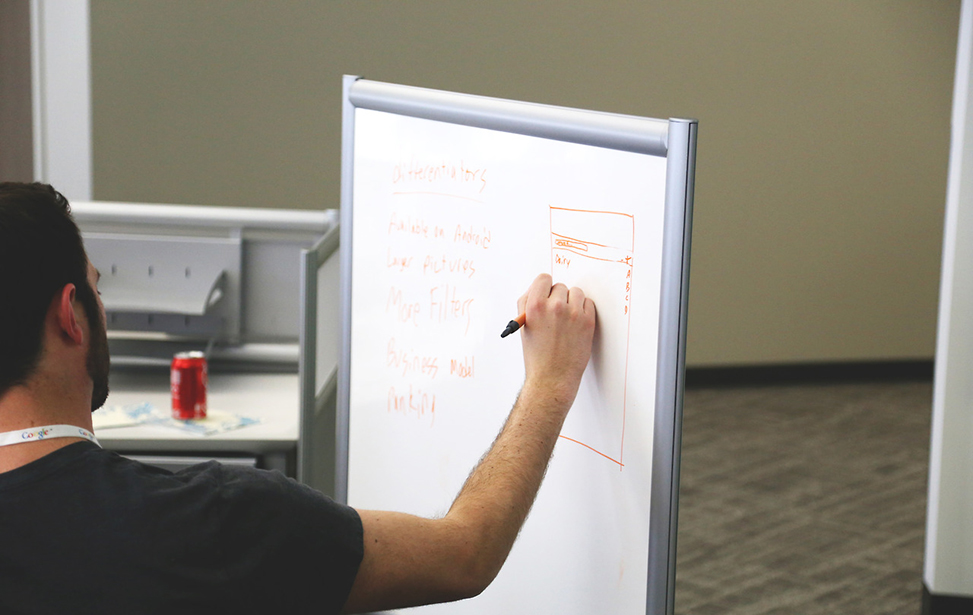 Differentiators
Available on Android
Larger pictures
More Filters
Business model
ranking
Dairy
A
B
C
D
Google